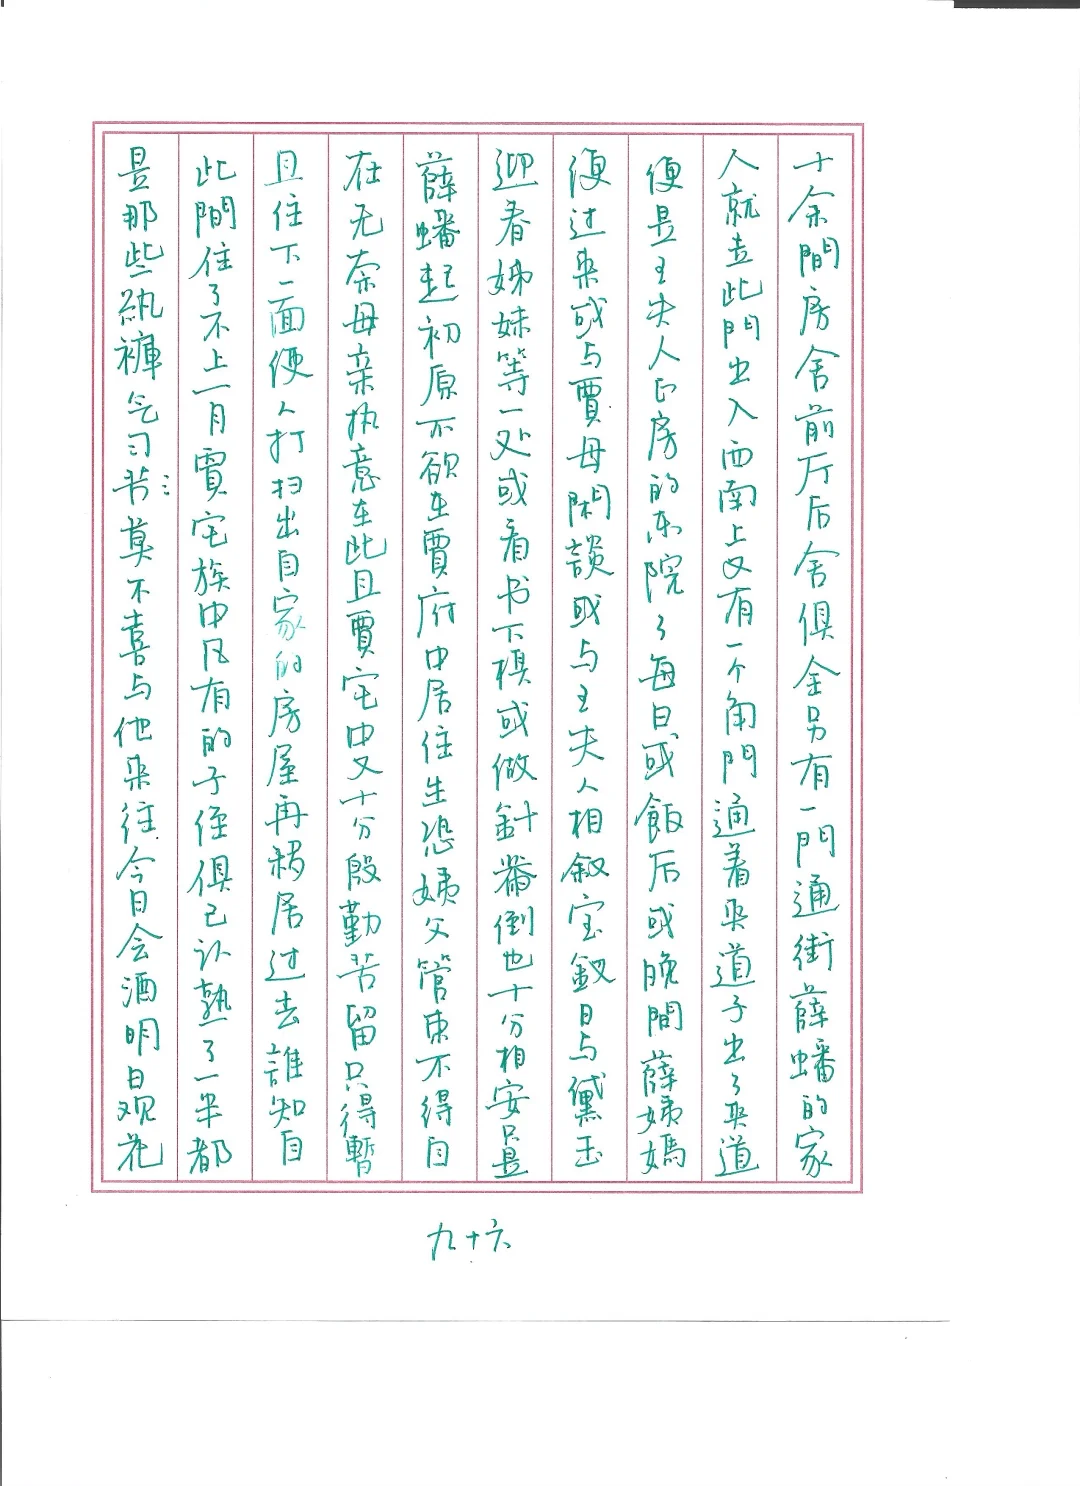 十余間房舍前厅后舍俱全另有一門通街薛蟠的家
人就走此門出入西南上又有一个角門通着夹道子出了夹道
便是王夫人正房的东院了每日或飯后或晚間薛姨媽
便过来或与賈母閑談或与王夫人相叙宝釵日与黛玉
迎春姊妹等一处或看书下棋或做針黹倒也十分相安只是
薛蟠起初原不欲在賈府中居住生恐姨父管束不得自
在无奈母亲执意在此且賈宅中又十分殷勤苦留只得暫
且住下一面使人打扫出自家的房屋再移居过去誰知自
此間住了不上一月賈宅族中凡有的子侄俱已认熟了一半都
是那些紈褲气习者莫不喜与他来往今日会酒明日观花
九十六